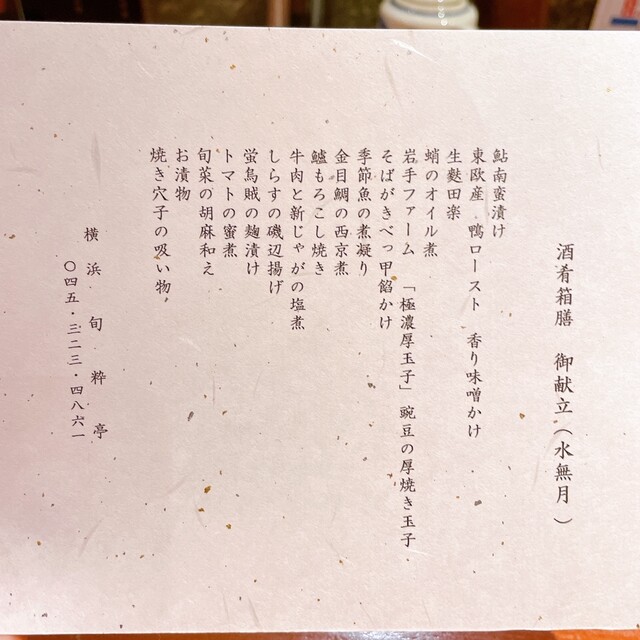 酒肴箱膳　御献立（水無月）
鮎南蛮漬け
東欧産　鴨ロースト　香り味噌かけ
生麩田楽
蛸のオイル煮
岩手ファーム　「極濃厚玉子」豌豆の厚焼き玉子
そばがきべっ甲餡かけ
季節魚の煮凝り
金目鯛の西京煮
鱸もろこし焼き
牛肉と新じゃがの塩煮
しらすの磯辺揚げ
蛍烏賊の麹漬け
トマトの蜜煮
旬菜の胡麻和え
お漬物
焼き穴子の吸い物
横浜旬粋亭
〇四五・三二三・四八六一